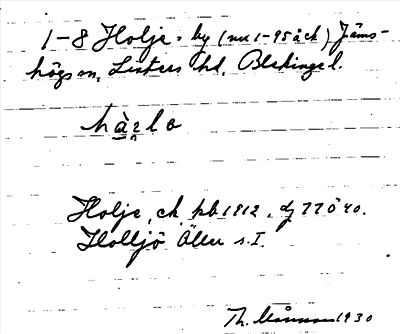 1-8 Holje = by (nu 1-95 a ck) Jäms-
högs sn, Listers hd, Blekinge l.
hàrlo
Holje, ck, pb 1912, dj 77 Ö 40.
Holljö Öller s. I.
Th. Månsson 1930